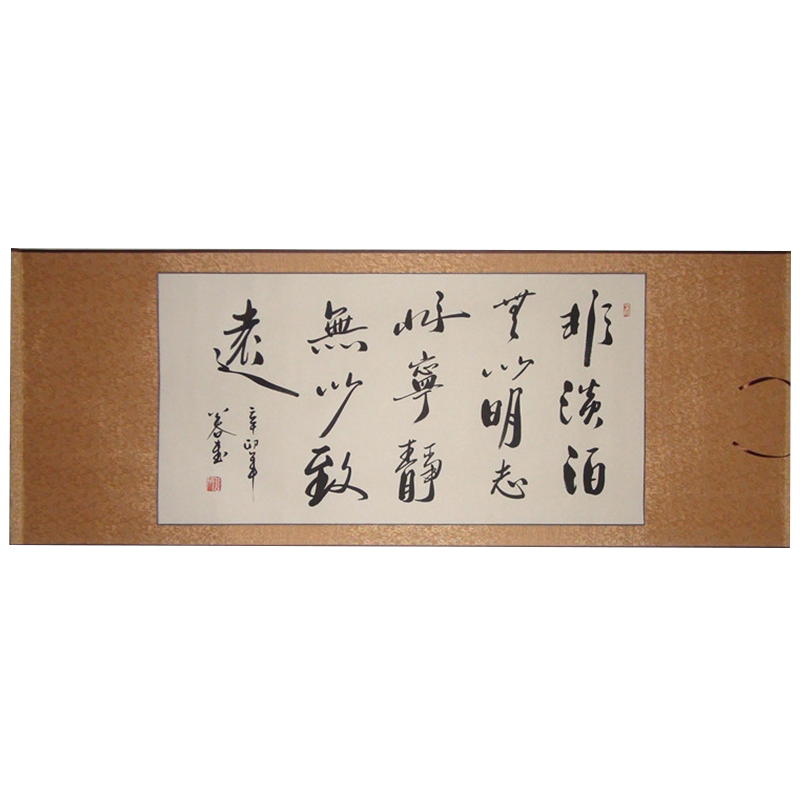 非淡泊
無以明志
非寧靜
無以致
遠
辛卯年